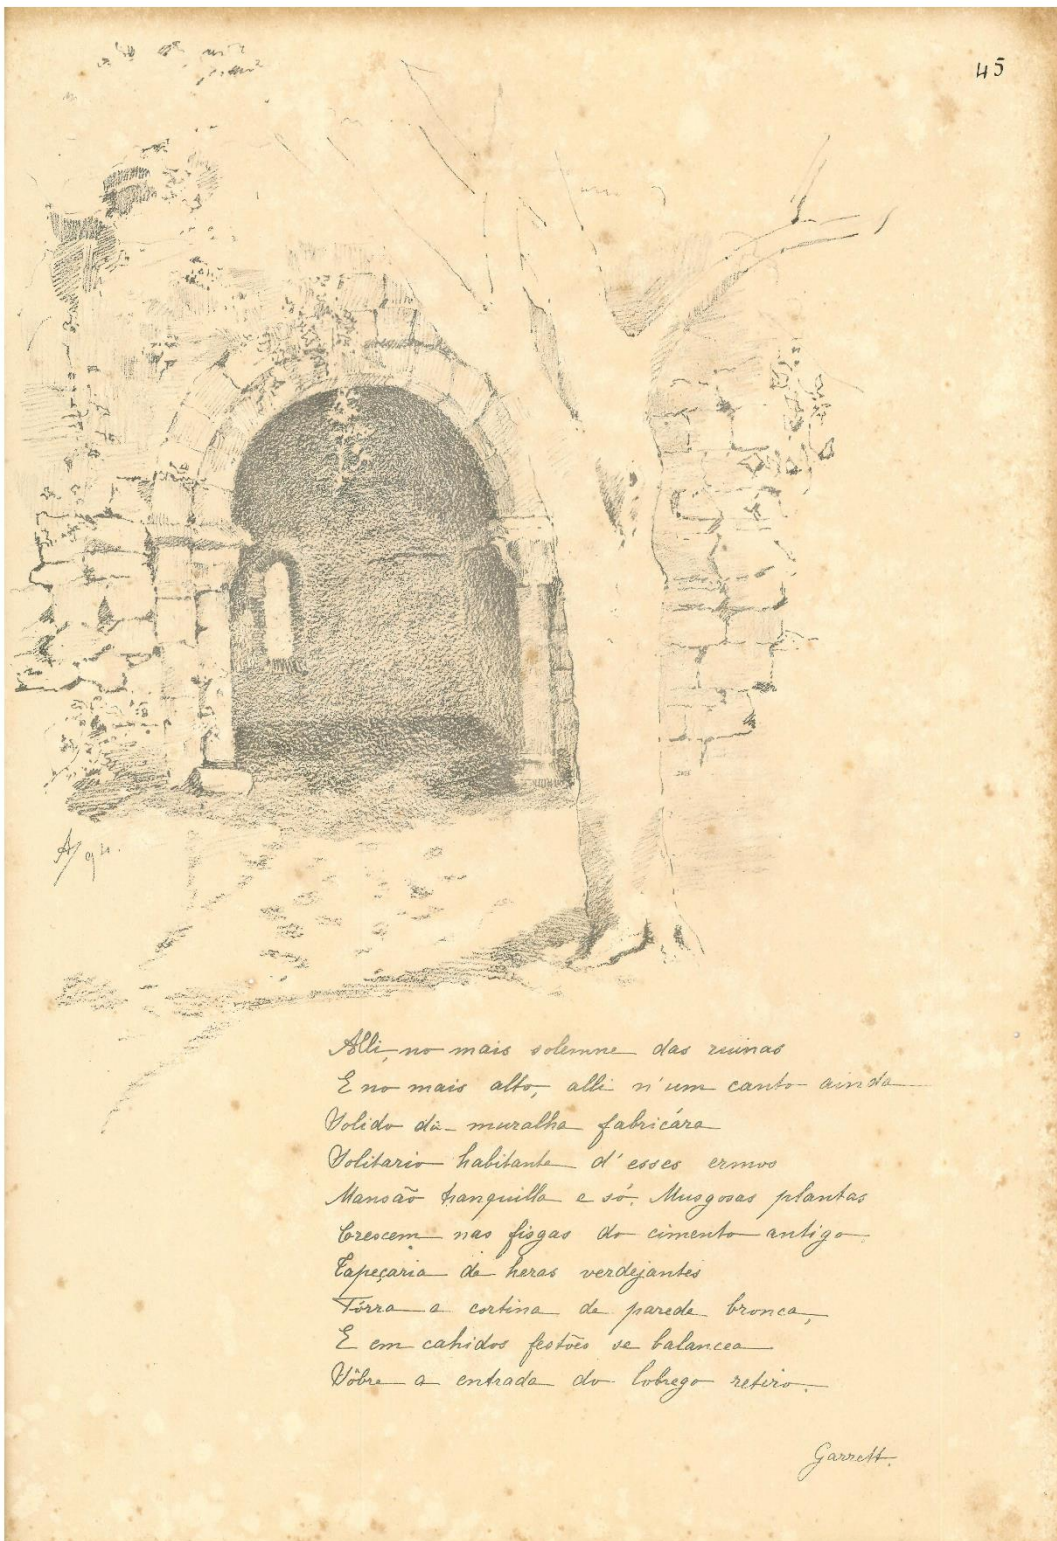 45
Alli, no mais solemne das ruinas
E no mais alto, alli n'um canto ainda
Solido da muralha fabricára
Solitario habitante d'esses ermos
Mansão tranquilla e só. Musgosas plantas
Crescem nas fisgas do cimento antigo.
Tapeçaria de heras verdejantes
Fórra a cortina de parede bronca,
E em cahidos festões se balancea
Sôbre a entrada do lobrego retiro.
Garrett.